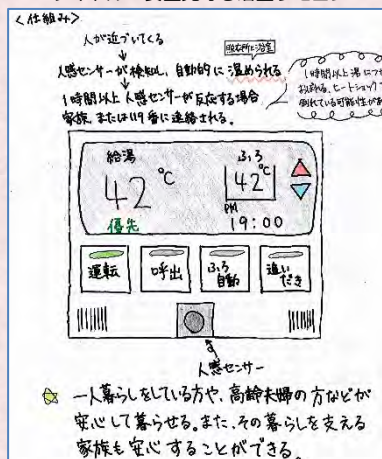 <仕組み>
人が近づいてくる
↓
脱衣所に浴室
人感センサーが検知し、自動的に温められる
↓
1時間以上人感センサーが反応する場合
家族、または119番に連絡される。
1時間以上湯に
ヒートショック
倒れている可能性が
給湯
42℃
優先
ふろ
42℃
PM
19:00
運転
呼出
ふろ
自動
追い
だき
人感センサー
一人暮らしをしている方や、高齢夫婦の方などが
安心して暮らせる。また、その暮らしを支える
家族も安心することができる。